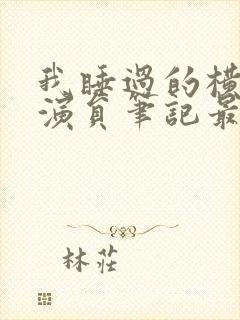 我睡過的橫
演員筆記最
林莊